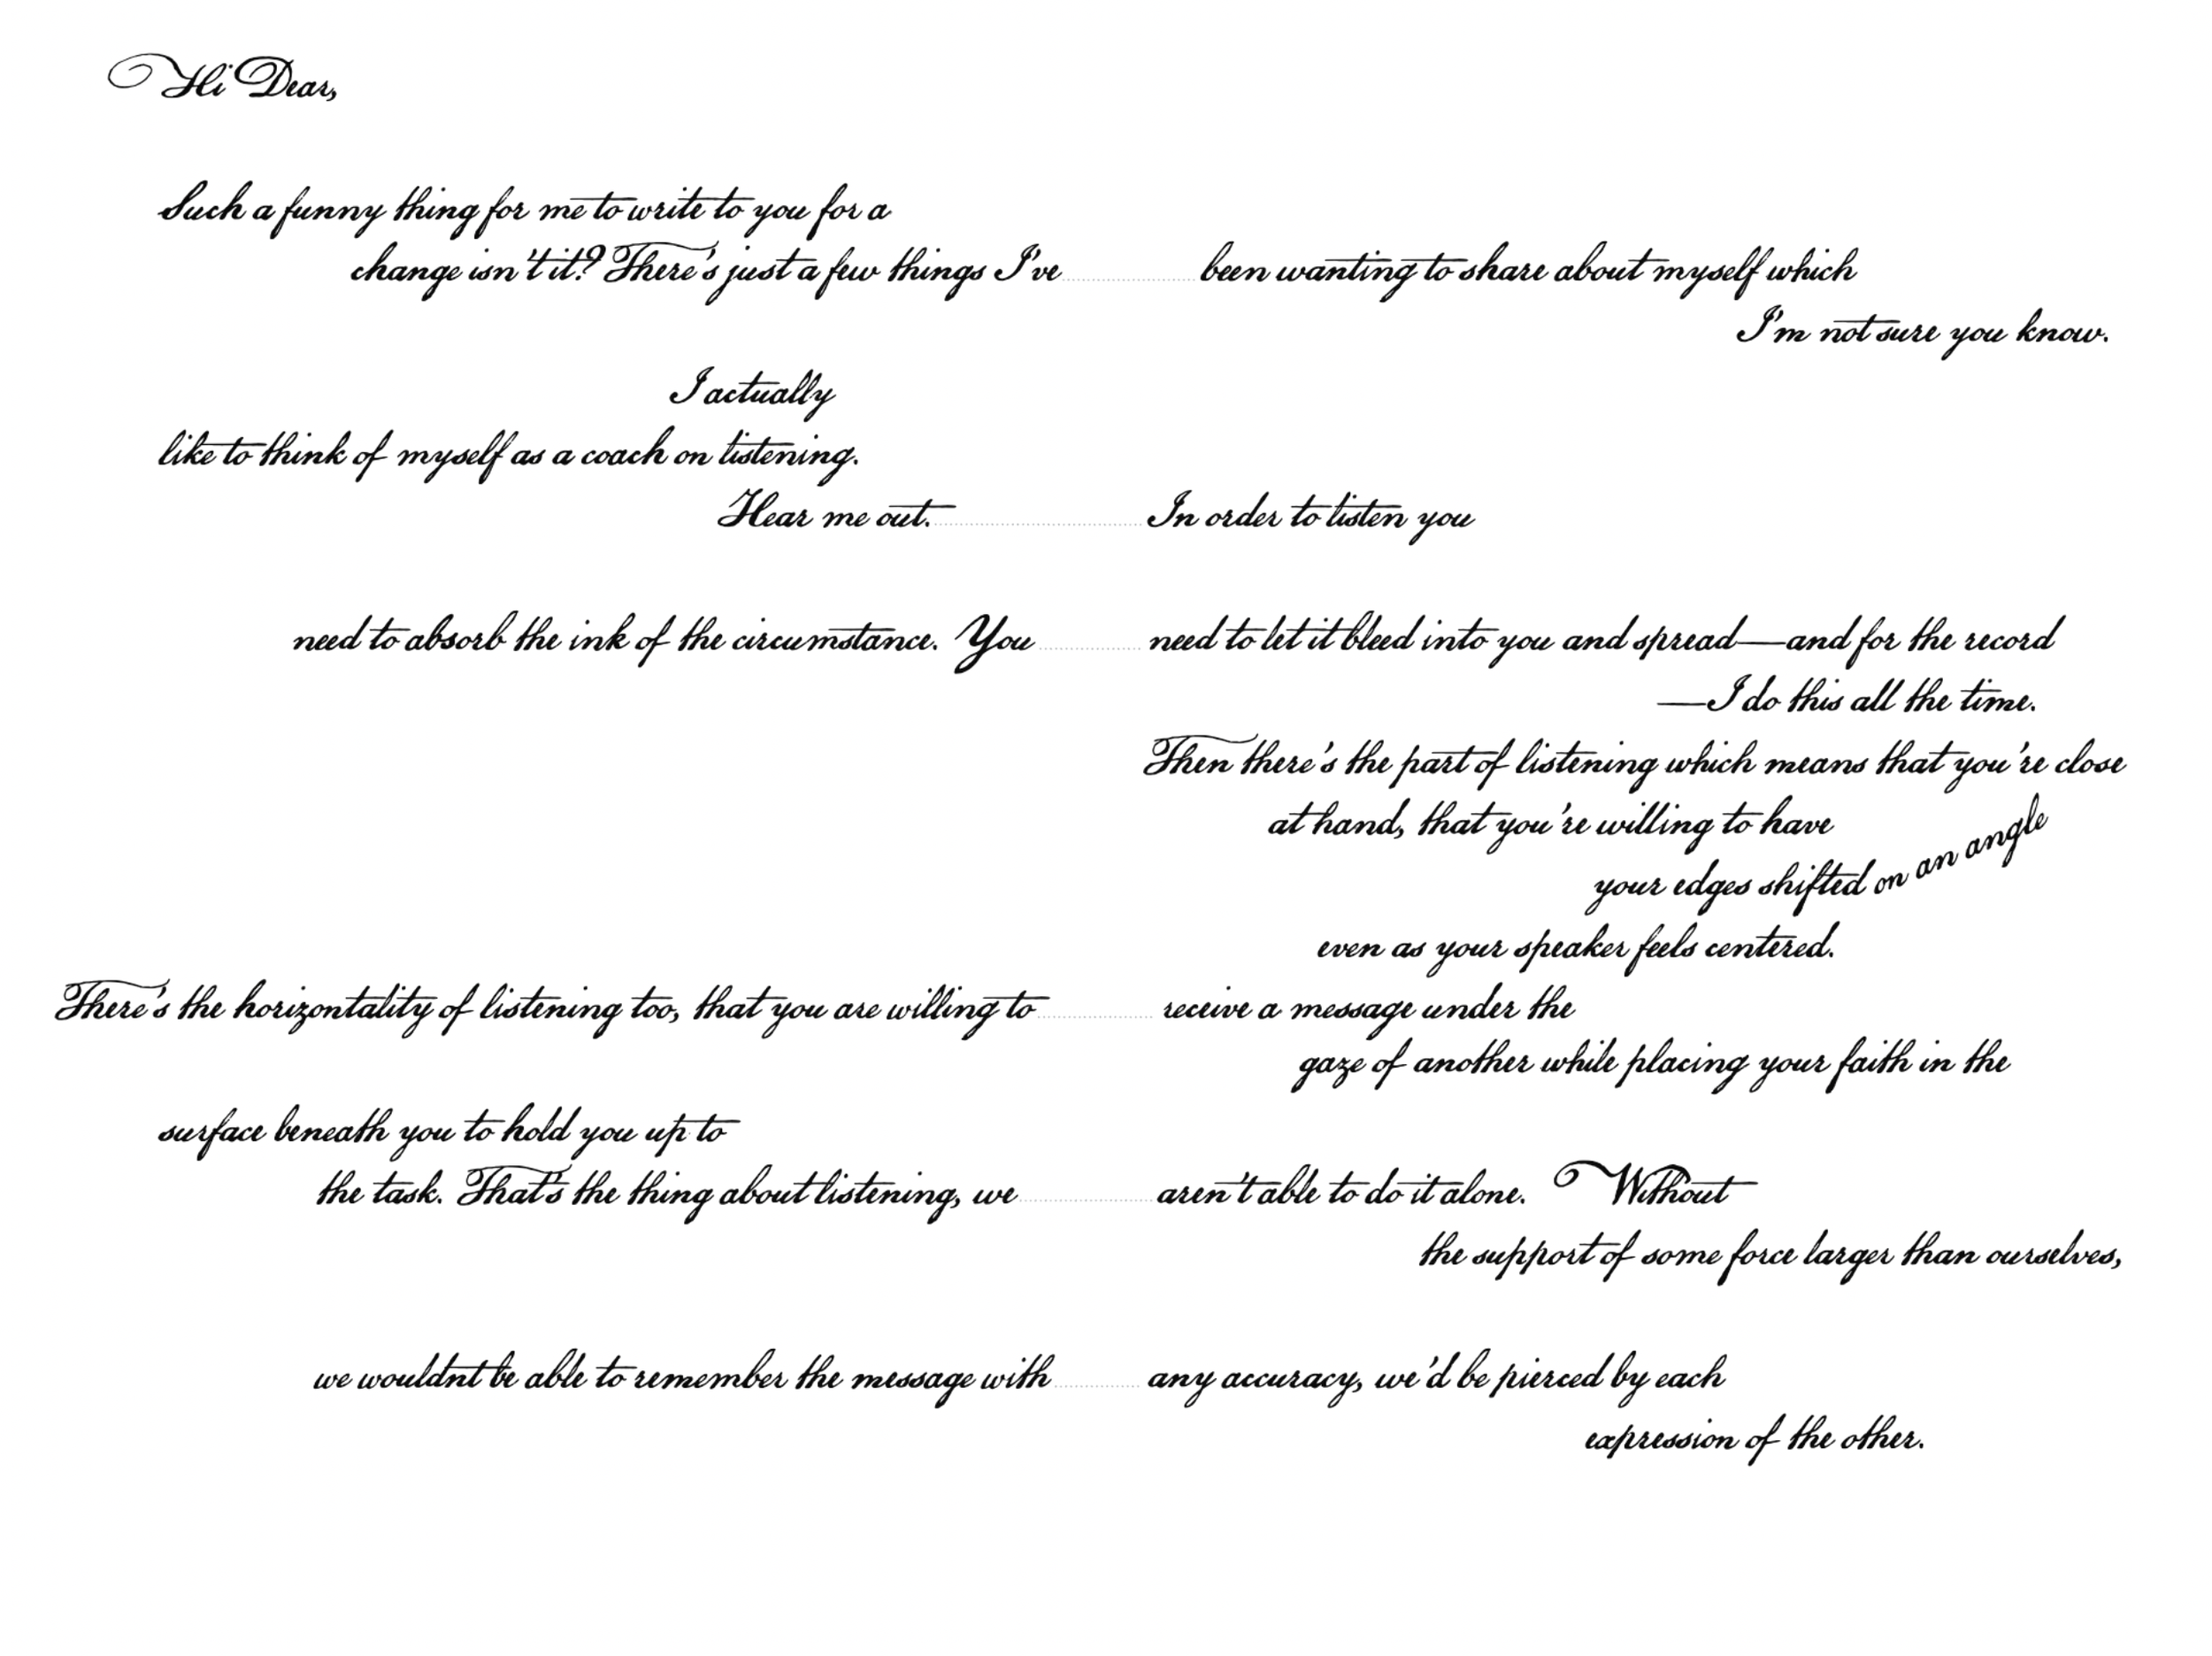 Hi Dear,
Such a funny thing for me to write to you for a
change isn't it? There's just a few things I've been wanting to share about myself which
I'm not sure you know.
I actually
like to think of myself as a coach on listening.
Hear me out. In order to listen you
need to absorb the ink of the circumstance. You need to let it bleed into you and spread—and for the record
—I do this all the time.
Then there's the part of listening which means that you're close
at hand, that you're willing to have
your edges shifted on an angle
even as your speaker feels centered.
There's the horizontality of listening too, that you are willing to receive a message under the
gaze of another while placing your faith in the
surface beneath you to hold you up to
the task. That's the thing about listening, we aren't able to do it alone. Without
the support of some force larger than ourselves,
we wouldnt be able to remember the message with any accuracy, we'd be pierced by each
expression of the other.